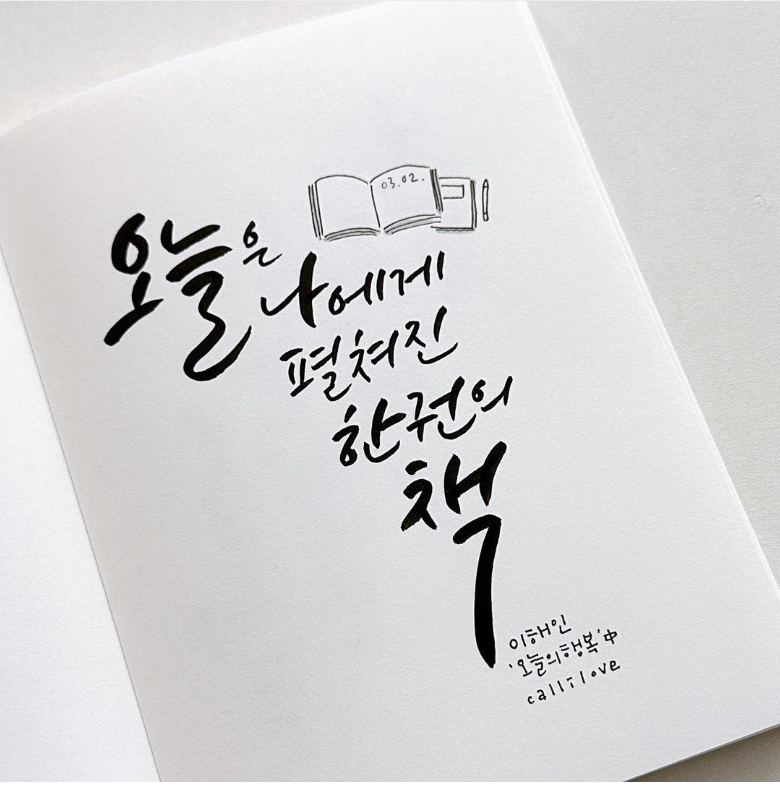 03.02.
오늘은
나에게
펼쳐진
한권의
책
이해인
'오늘의행복'中
callilove